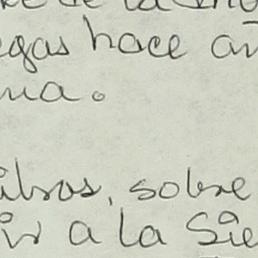 de la
egas hace añ
na.
libros, sobre
ir a la Sie